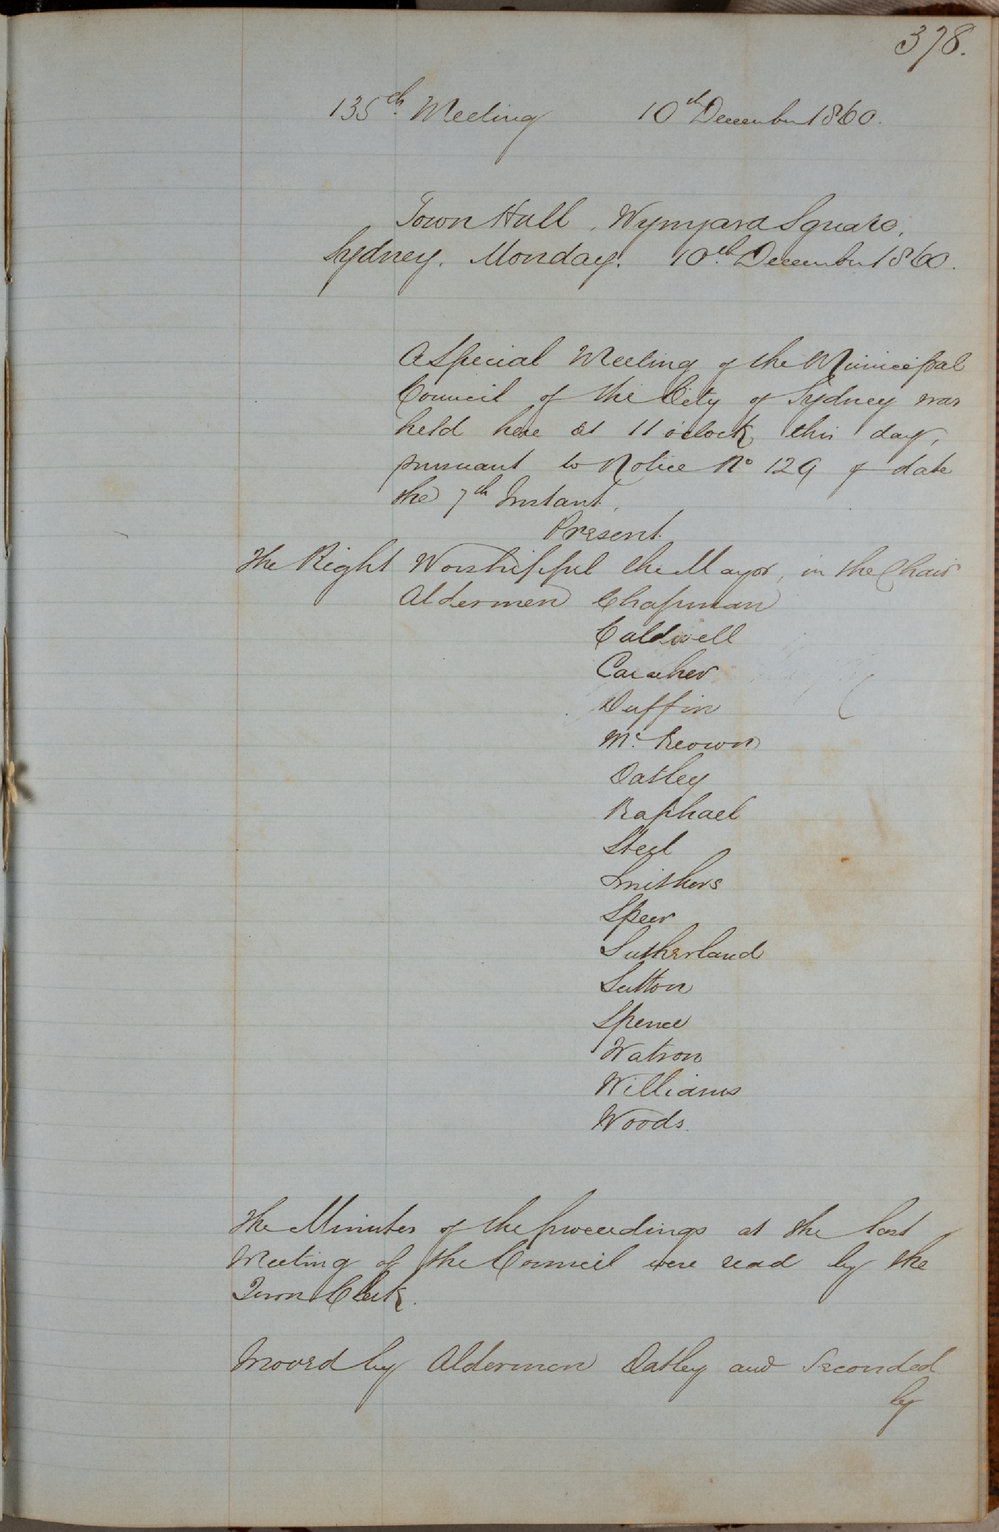 378.
135th Meeting 10th December 1860.
Town Hall, Wynyard Square,
Sydney. Monday. 10th December 1860.
A Special Meeting of the Municipal
Council of the City of Sydney was
held here at 11 o'clock this day,
pursuant to Notice No 129 of date
the 7th Instant.
Present.
The Right Worshipful the Mayor, in the Chair
Aldermen Chapman
Caldwell
Caraher
Duffin
Mc Keown
Oatley
Raphael
Steel
Smithers
Speer
Sutherland
Sutton
Spence
Watson
Williams
Woods.
The Minutes of the proceedings at the last
Meeting of the Council were read by the
Town Clerk.
Moved by Alderman Oatley and Seconded
by